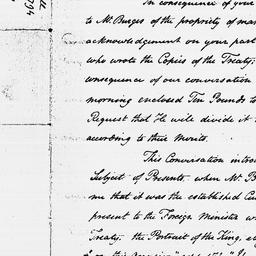 In consequence of your
to Mr. Burges of the propriety of
acknowledgement on your part
who wrote the Copies of the Treaty;
consequence of our conversation
morning enclosed Ten Pounds to
Request that He will divide it
according to their Merits.
This Conversation
Subject of Presents. when Mr. B
me that it was the established
present to the Foreign Minister
Treaty. the Portrait of the King,
1794